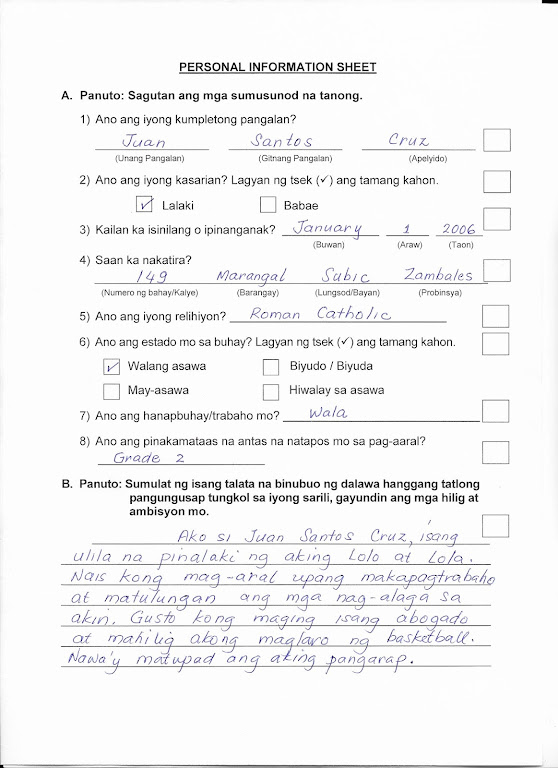 PERSONAL INFORMATION SHEET
A. Panuto: Sagutan ang mga sumusunod na tanong.
1) Ano ang iyong kumpletong pangalan?
Juan Santos Cruz
(Unang Pangalan) (Gitnang Pangalan) (Apelyido)
2) Ano ang iyong kasarian? Lagyan ng tsek (✓) ang tamang kahon.
✓ Lalaki Babae
3) Kailan ka isinilang o ipinanganak? January 1 2006
(Buwan) (Araw) (Taon)
4) Saan ka nakatira?
149 Marangal Subic Zambales
(Numero ng bahay/Kalye) (Barangay) (Lungsod/Bayan) (Probinsya)
5) Ano ang iyong relihiyon? Roman Catholic
6) Ano ang estado mo sa buhay? Lagyan ng tsek (✓) ang tamang kahon.
✓ Walang asawa Biyudo / Biyuda
May-asawa Hiwalay sa asawa
7) Ano ang hanapbuhay/trabaho mo? Wala
8) Ano ang pinakamataas na antas na natapos mo sa pag-aaral?
Grade 2
B. Panuto: Sumulat ng isang talata na binubuo ng dalawa hanggang tatlong
pangungusap tungkol sa iyong sarili, gayundin ang mga hilig at
ambisyon mo.
Ako si Juan Santos Cruz, isang
ulila na pinalaki ng aking Lolo at Lola.
Nais kong mag-aral upang makapagtrabaho
at matulungan ang mga nag-alaga sa
akin. Gusto kong maging isang abogado
at mahilig akong maglaro ng basketball.
Nawa'y matupad ang aking pangarap.